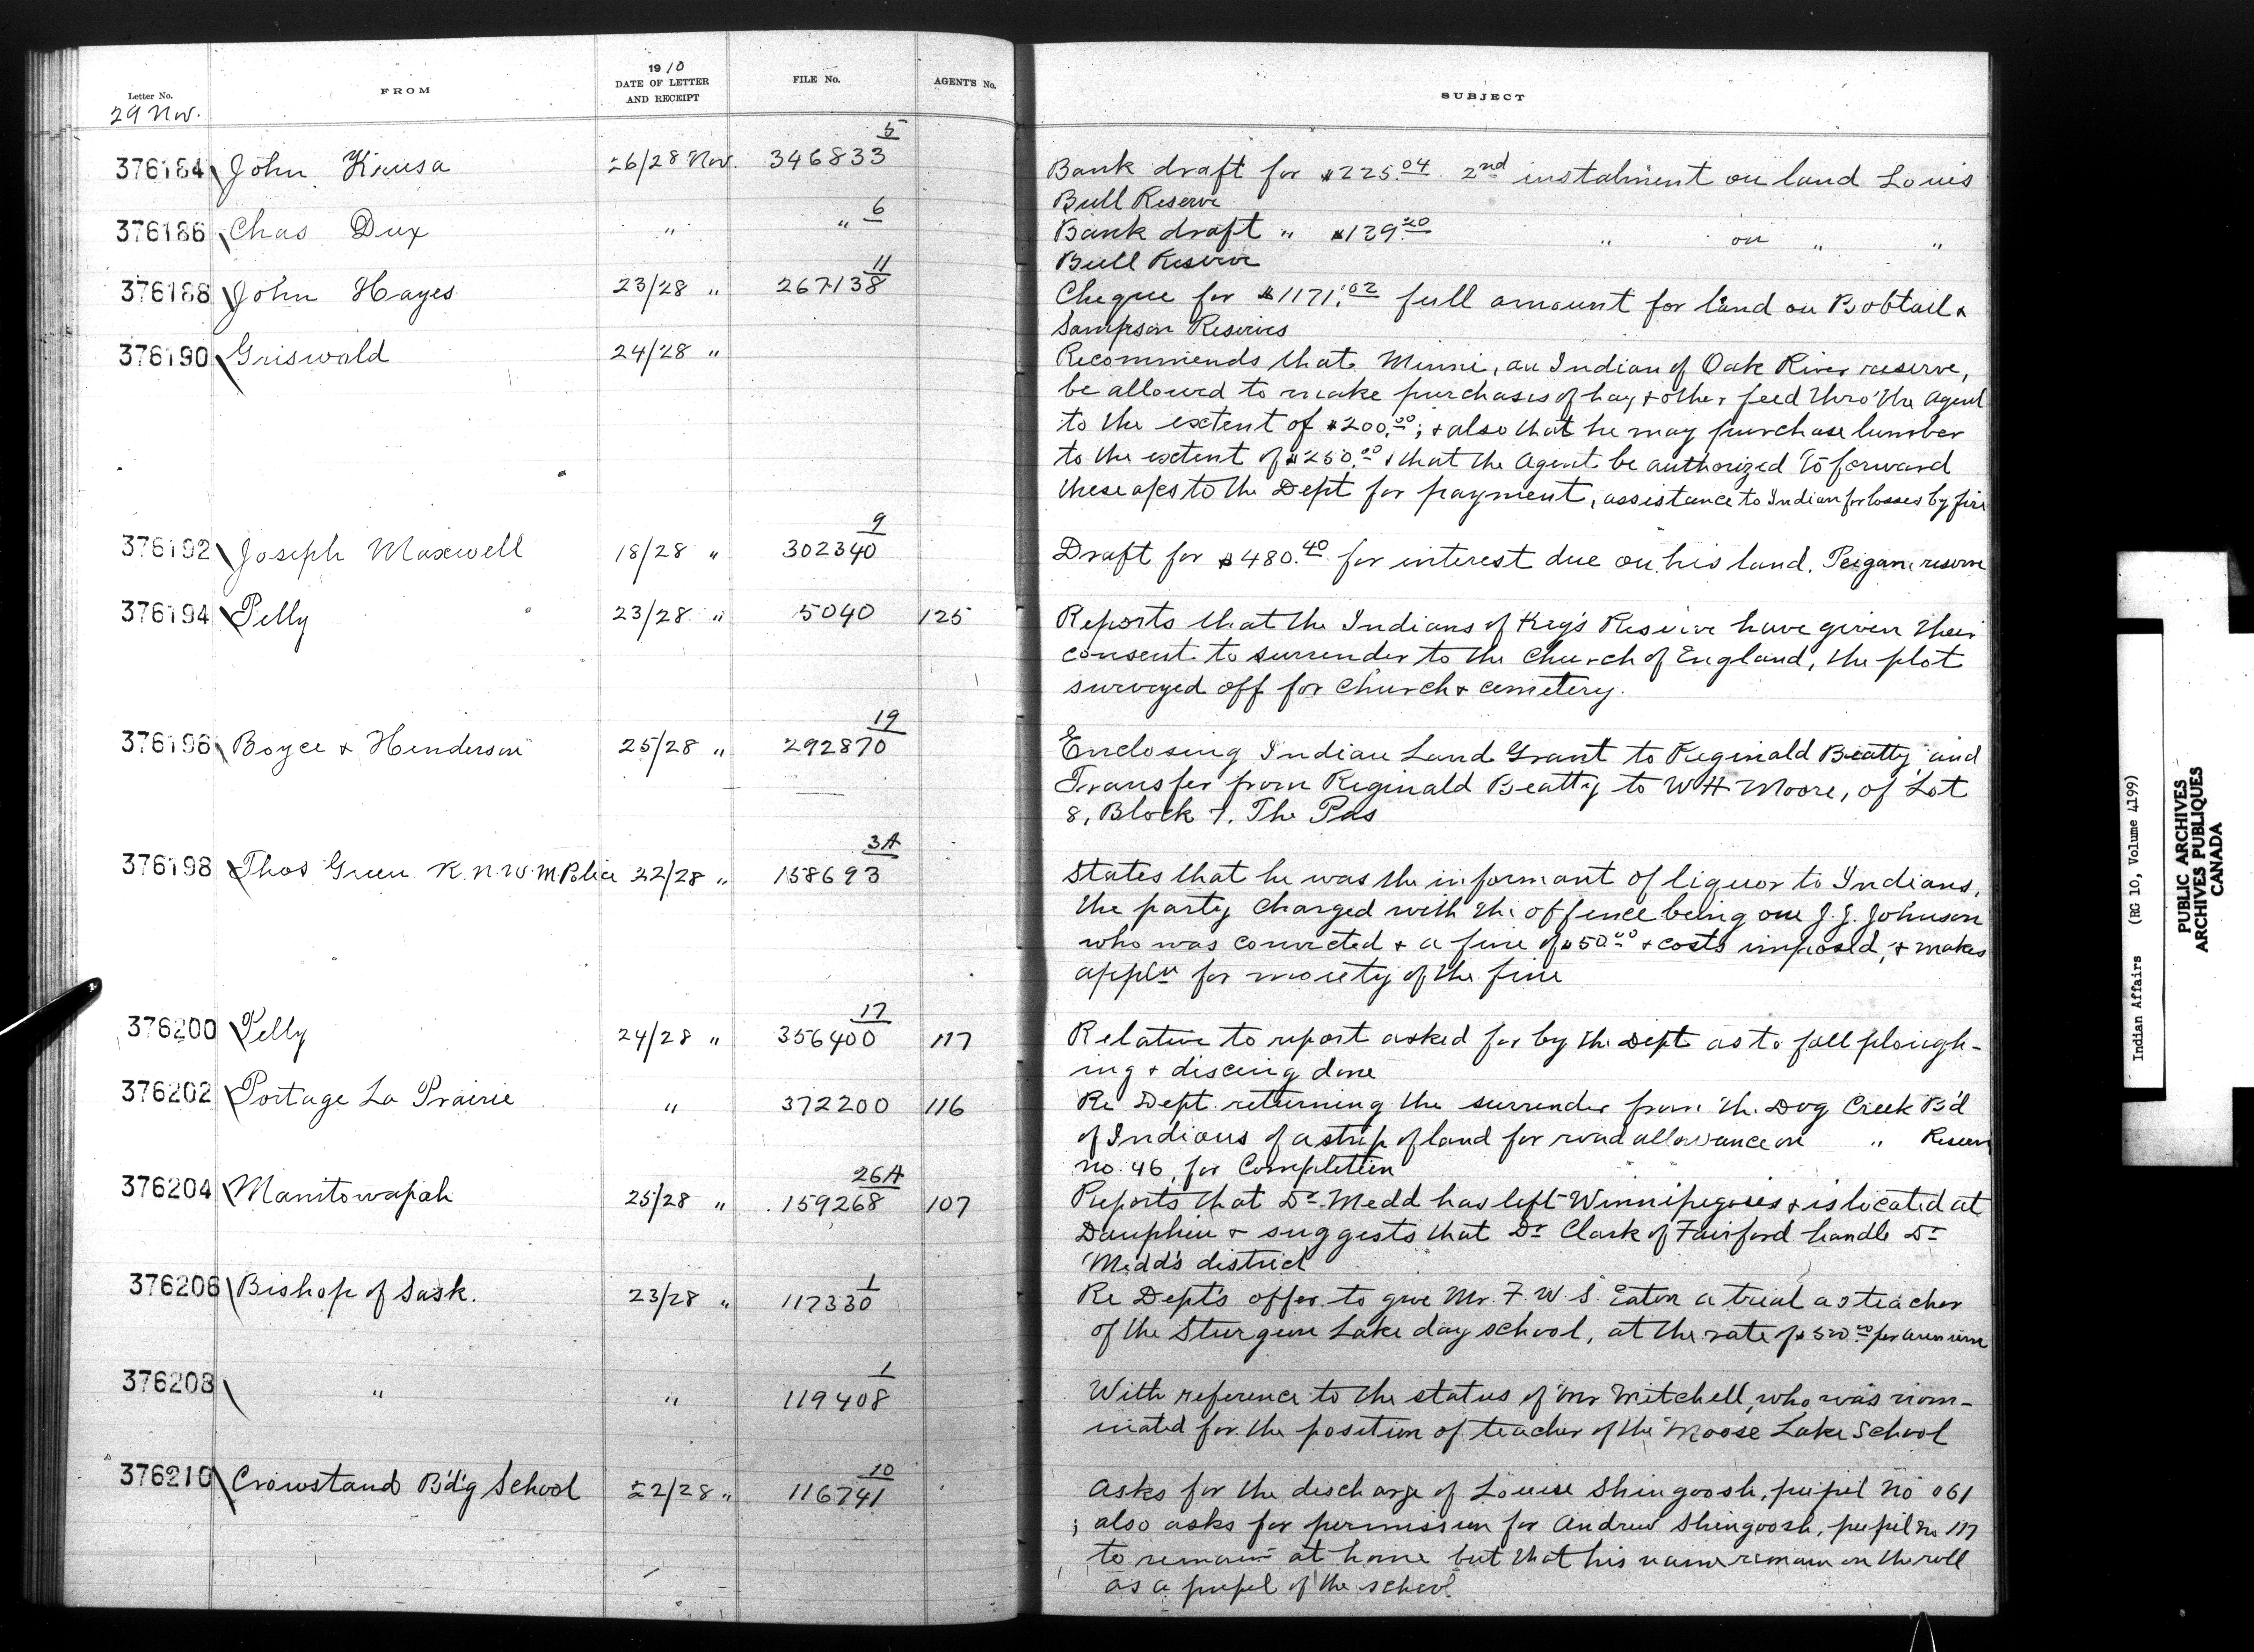 Letter No.
FROM
1910
DATE OF LETTER
AND RECEIPT
FILE No.
AGENT'S No.
SUBJECT
29 Nov.
376184 John 26/28 Nov. 346833 5 Bank draft for $225.04 2nd instalment on land Louis
Bull Reserve
376186 Chas Dux " " 6 Bank draft " $139.20 " on " "
Bull Reserve
376188 John Hayes 23/28 " 267138 11 Cheque for $1171.02 full amount for land on Bobtail &
Sampson Reserves
376190 Griswald 24/28 " Recommends that Minni, an Indian of Oak River reserve,
be allowed to make purchases of hay & other feed thro' the Agent
to the extent of $200.00; & also that he may purchase lumber
to the extent of $250.00 & that the Agent be authorized to forward
these a/cs to the Dept for payment, assistance to Indian for losses by fire
376192 Joseph Maxwell 18/28 " 302340 9 Draft for $480.40 for interest due on his land, Peigan reserve
376194 Pelly 23/28 " 5040 125 Reports that the Indians of Key's Reserve have given their
consent to surrender to the Church of England, the plot
surveyed off for Church & cemetery.
376196 Boyce & Henderson 25/28 " 292870 19 Enclosing Indian Land Grant to Reginald Beatty and
Transfer from Reginald Beatty to W H Moore, of Lot
8, Block 7, The Pas
376198 Thos Green R.N.W.M Police 22/28 " 158693 3A States that he was the informant of liquor to Indians,
the party charged with the offence being one J. J. Johnson
who was convicted & a fine of $50.00 & costs imposed, & makes
appln for moiety of the fine
376200 Pelly 24/28 " 356400 17 117 Relative to report asked for by the Dept as to fall plough-
ing & discing done
376202 Portage La Prairie " 372200 116 Re Dept. returning the surrender from the Dog Creek B'd
of Indians of a strip of land for road allowance on " Reserve
no. 46, for Completion
376204 Manitowapah 25/28 " 159268 26A 107 Reports that Dr. Medd has left Winnipegosis & is located at
Dauphin & suggests that Dr Clark of Fairford handle Dr
Medd's district
376206 Bishop of Sask. 23/28 " 117330 1 Re Dept's offer to give Mr. F. W. S. Eaton a trial as teacher
of the Sturgeon Lake day school, at the rate of $500.00 per annum
376208 " " 119408 1 With reference to the status of Mr Mitchell, who was nom-
inated for the position of teacher of the Moose Lake School
376210 Crowstand B'd'g School 22/28 " 116741 10 Asks for the discharge of Louise Shingoosh, pupil no 061
; also asks for permission for Andrew Shingoosh, pupil no 117
to remain at home but that his name remain on the roll
as a pupil of the school
Indian Affairs (RG 10, Volume 4199)
PUBLIC ARCHIVES
ARCHIVES PUBLIQUES
CANADA